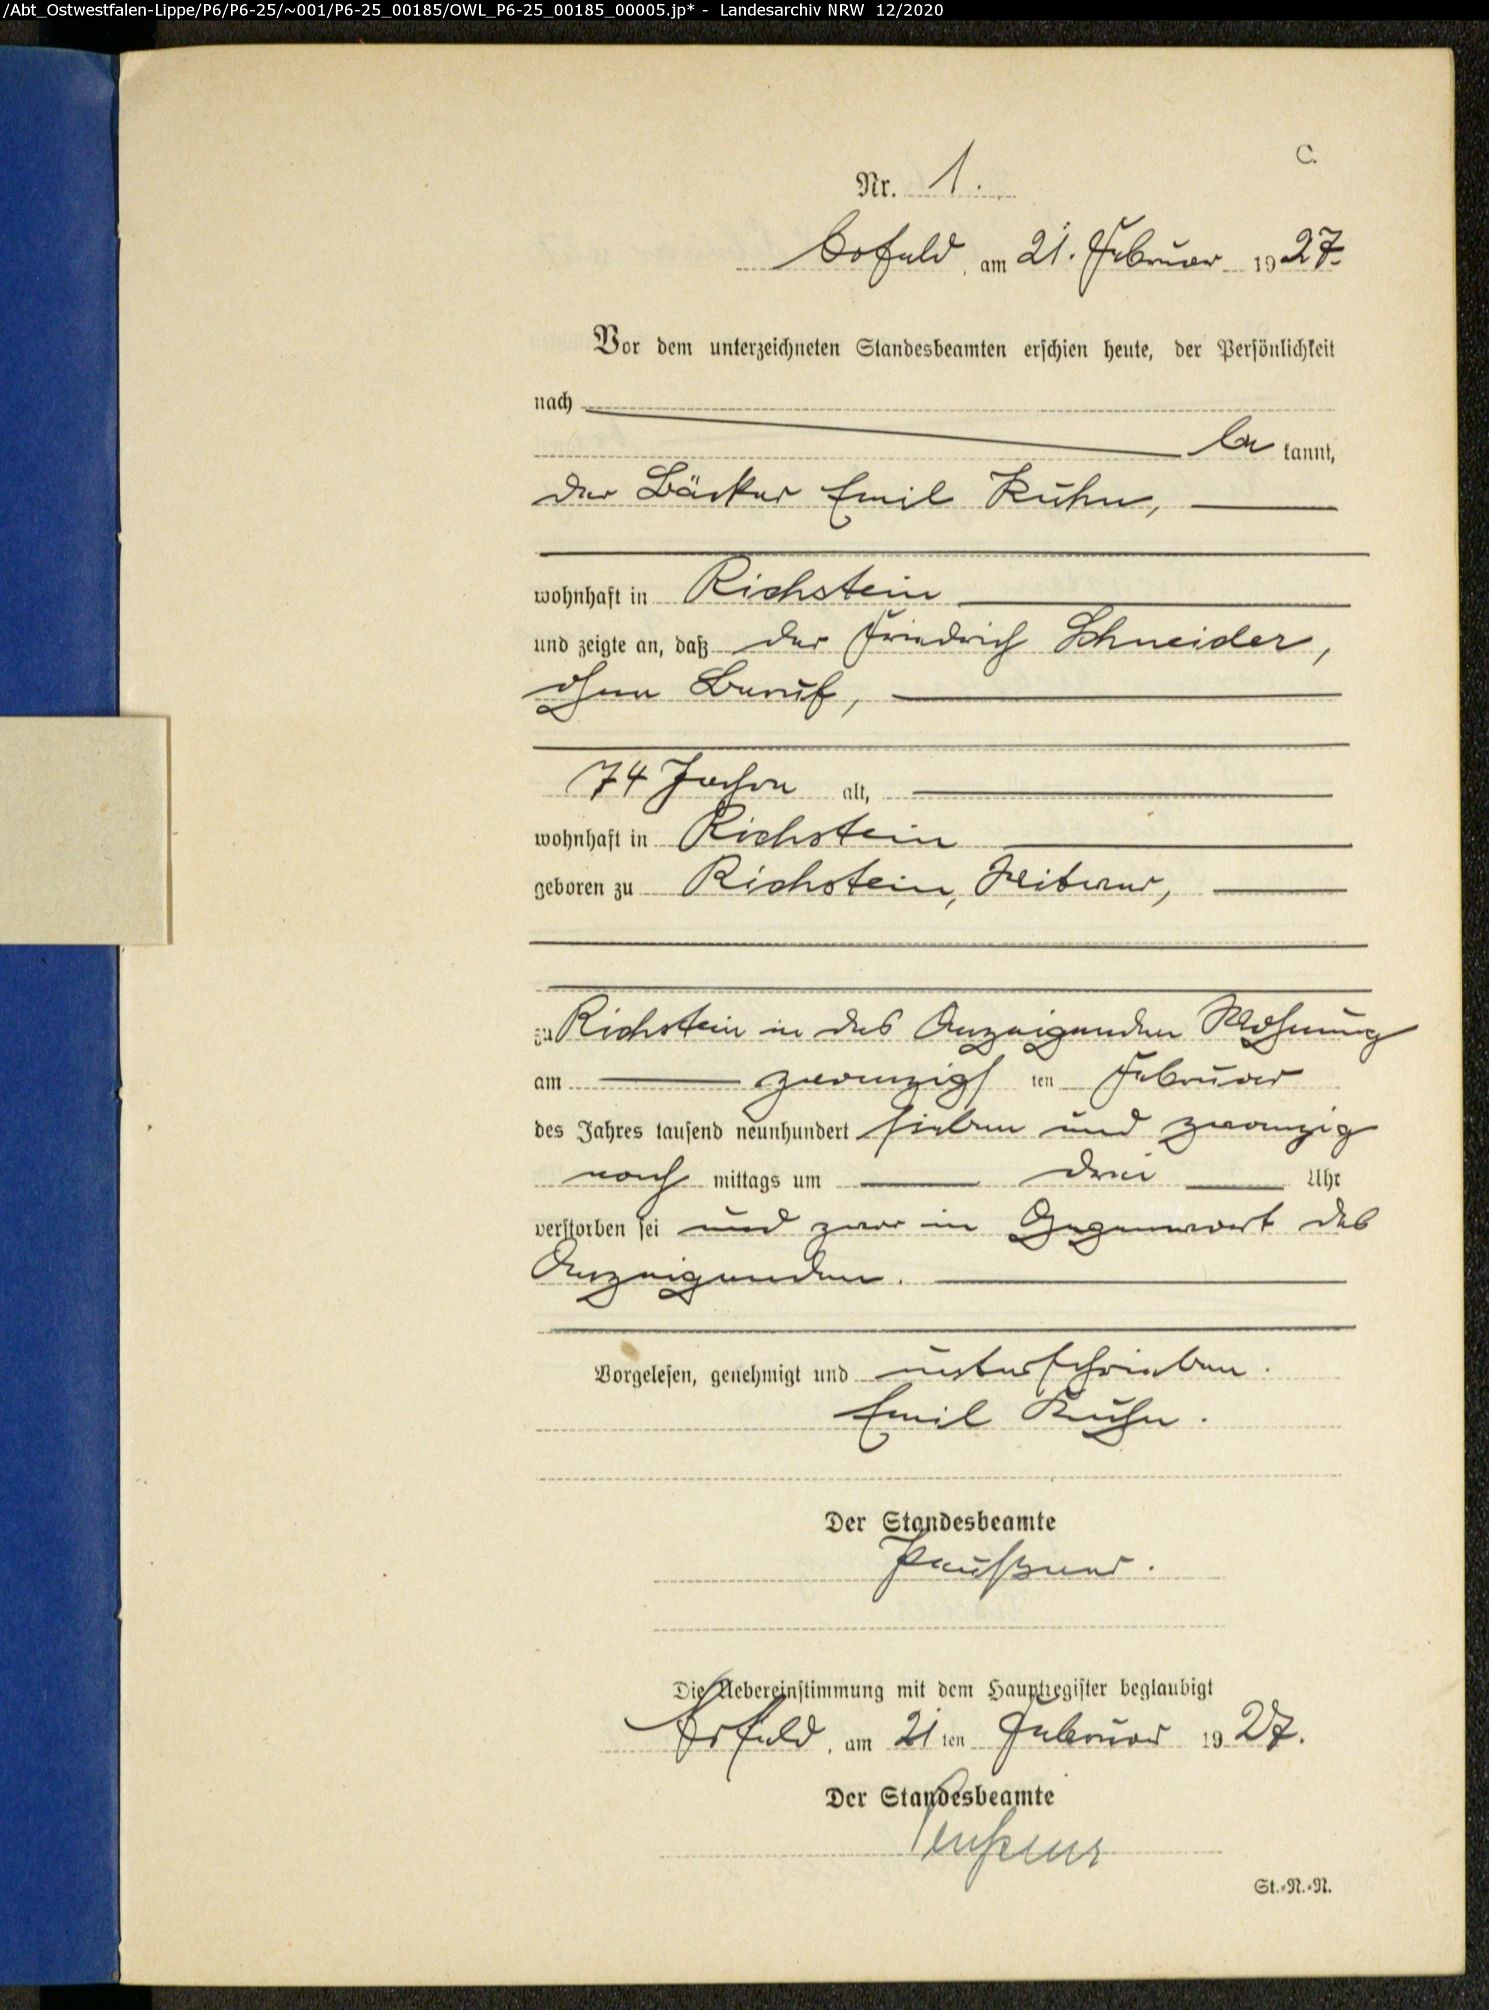 /Abt_Ostwestfalen-Lippe/P6/P6-25/~001/P6-25_00185/OWL_P6-25_00185_00005.jp* - Landesarchiv NRW 12/2020
C.
Nr. 1.
Arfeld, am 21. Februar 1927.
Vor dem unterzeichneten Standesbeamten erschien heute, der Persönlichkeit
nach
be kannt,
der Bäcker Emil Kuhn,
wohnhaft in Richstein
und zeigte an, daß der Friedrich Schneider,
ohne Beruf,
74 Jahre alt,
wohnhaft in Richstein
geboren zu Richstein, Witwer,
zu Richstein in des Anzeigenden Wohnung
am zwanzigsten Februar
des Jahres tausend neunhundert sieben und zwanzig
nach mittags um drei Uhr
verstorben sei und zwar in Gegenwart des
Anzeigenden.
Vorgelesen, genehmigt und unterschrieben.
Emil Kuhn.
Der Standesbeamte
Die Uebereinstimmung mit dem Hauptregister beglaubigt
Arfeld, am 21ten Februar 1927.
Der Standesbeamte
St.-N.-N.